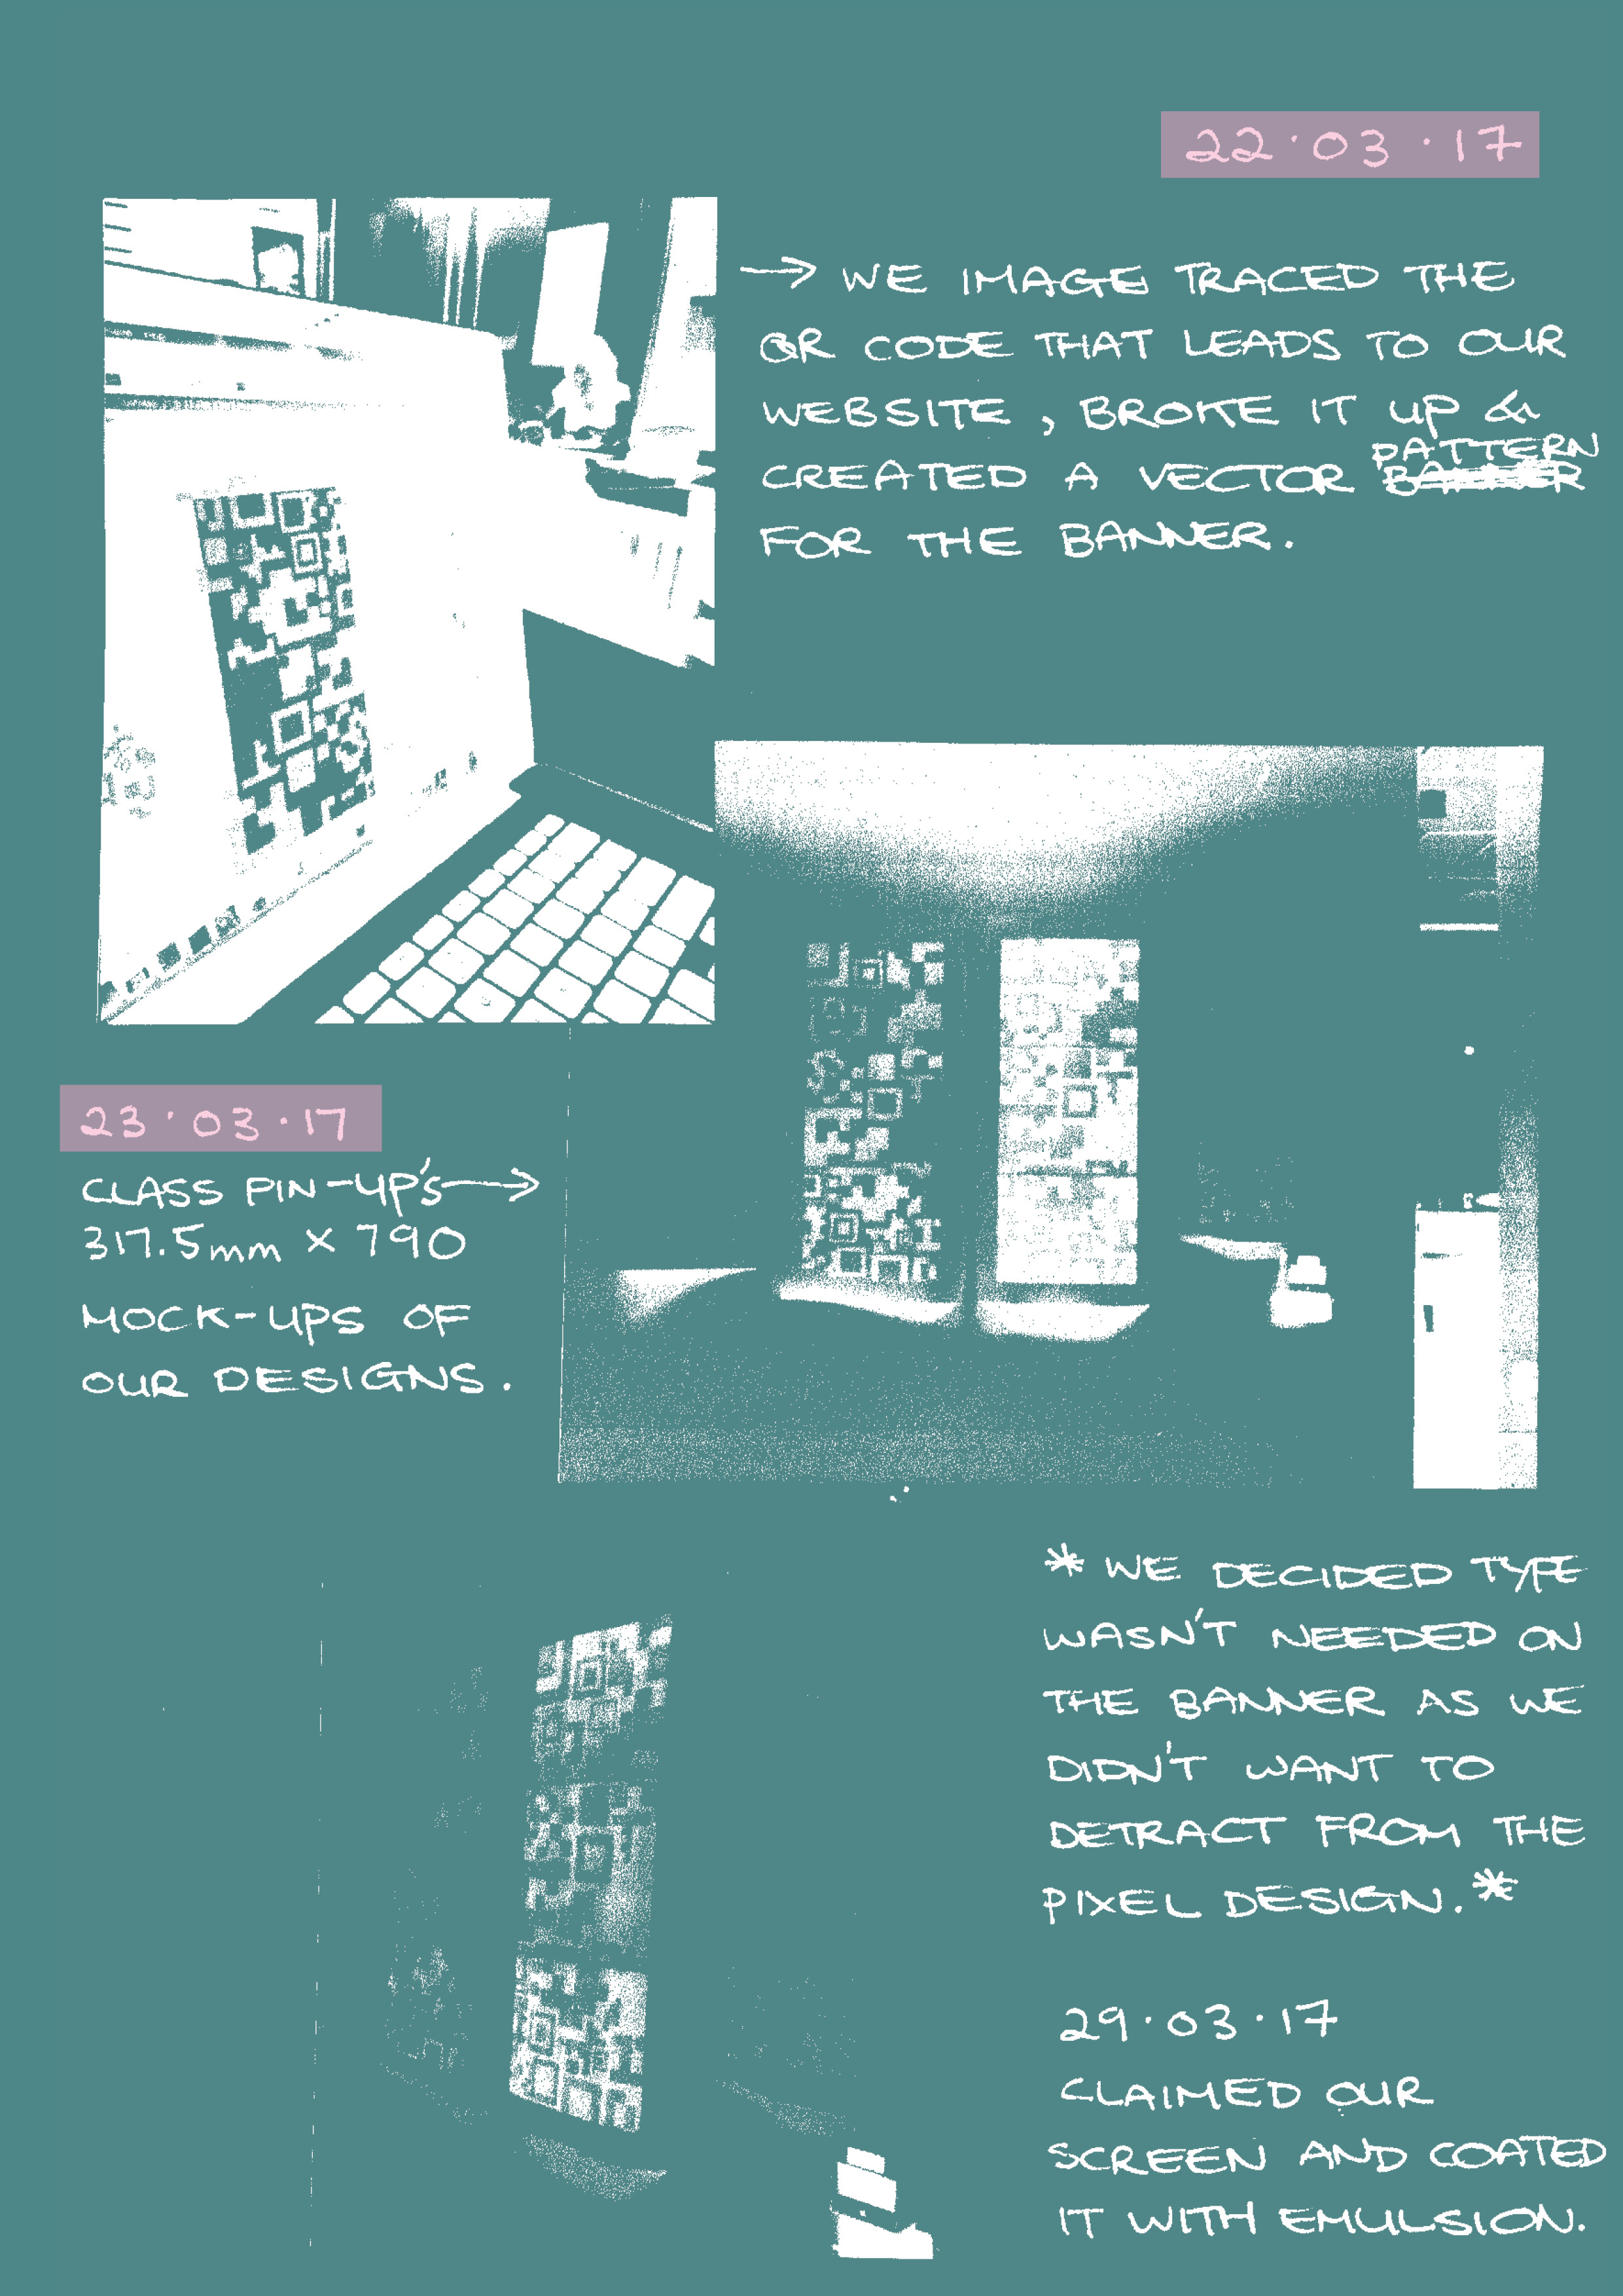 22·03·17
→ WE IMAGE TRACED THE
QR CODE THAT LEADS TO OUR
WEBSITE, BROKE IT UP &
CREATED A VECTOR PATTERN
FOR THE BANNER.
23·03·17
CLASS PIN-UP'S →
317.5mm X 790
MOCK-UPS OF
OUR DESIGNS.
* WE DECIDED TYPE
WASN'T NEEDED ON
THE BANNER AS WE
DIDN'T WANT TO
DETRACT FROM THE
PIXEL DESIGN.*
29·03·17
CLAIMED OUR
SCREEN AND COATED
IT WITH EMULSION.